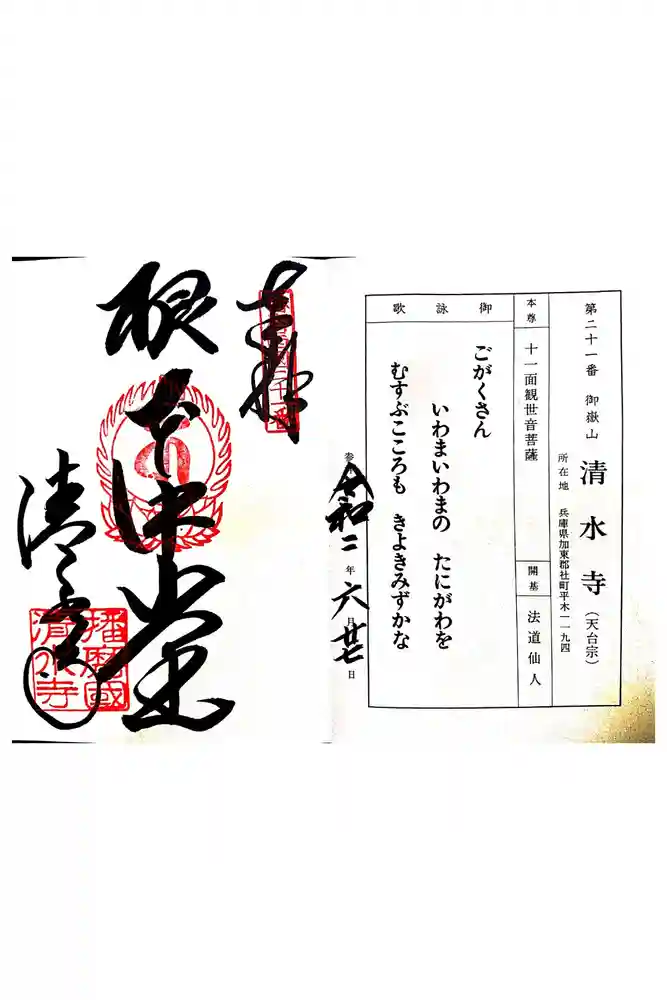 第二十一番 御嶽山 清水寺（天台宗）
所在地 兵庫県加東郡社町平木一一九四
本尊 十一面観世音菩薩
開基 法道仙人
御詠歌
ごがくさん
いわまいわまの たにがわを
むすぶこころも きよきみずかな
令和二年六月廿七日
奉拝
根本中堂
清水寺
播磨國
清水寺